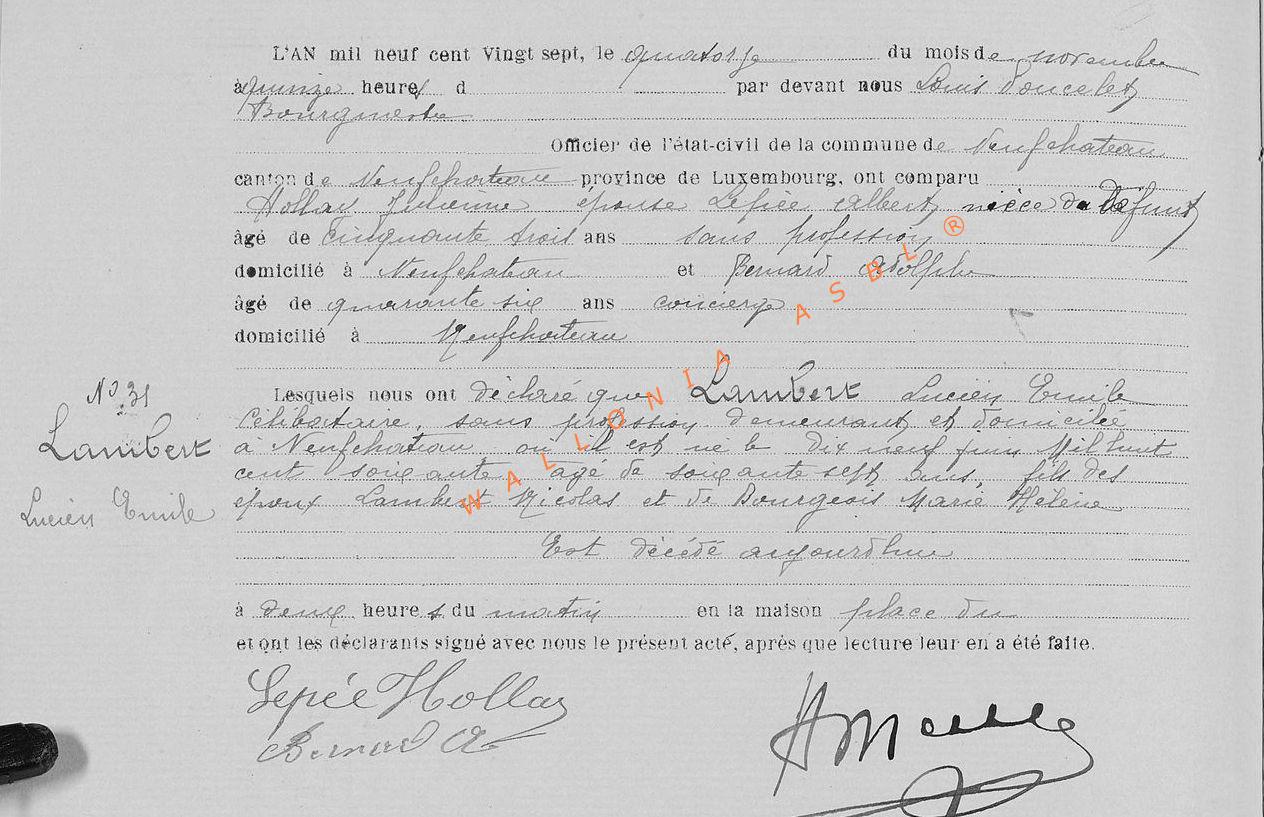 L'AN mil neuf cent Vingt sept, le quatorze du mois de novembre
à quinze heures d par devant nous Louis Poncelet
Bourgmestre
Officier de l'état-civil de la commune de Neufchateau
canton de Neufchateau province de Luxembourg, ont comparu
Hollay épouse Lepiée Albert nièce du défunt
âgé de cinquante trois ans sans profession
domicilié à Neufchateau et Bernard Adolphe
âgé de quarante six ans concierge
domicilié à Neufchateau
No 31
Lambert
Lucien Emile
Lesquels nous ont déclaré que Lambert Lucien Emile
Célibataire, sans profession demeurant et domicilié
à Neufchateau, où il est né le dix neuf juin Mil huit
cent soixante agé de soixante sept ans, fils des
époux Lambert Nicolas et de Bourgeois Marie Hélène
Est décédé aujourdhui
à deux heures du matin en la maison place du
et ont les déclarants signé avec nous le présent acté, après que lecture leur en a été faite.
Lepiée Hollay
Bernard A
WALLONIA ASBL ®